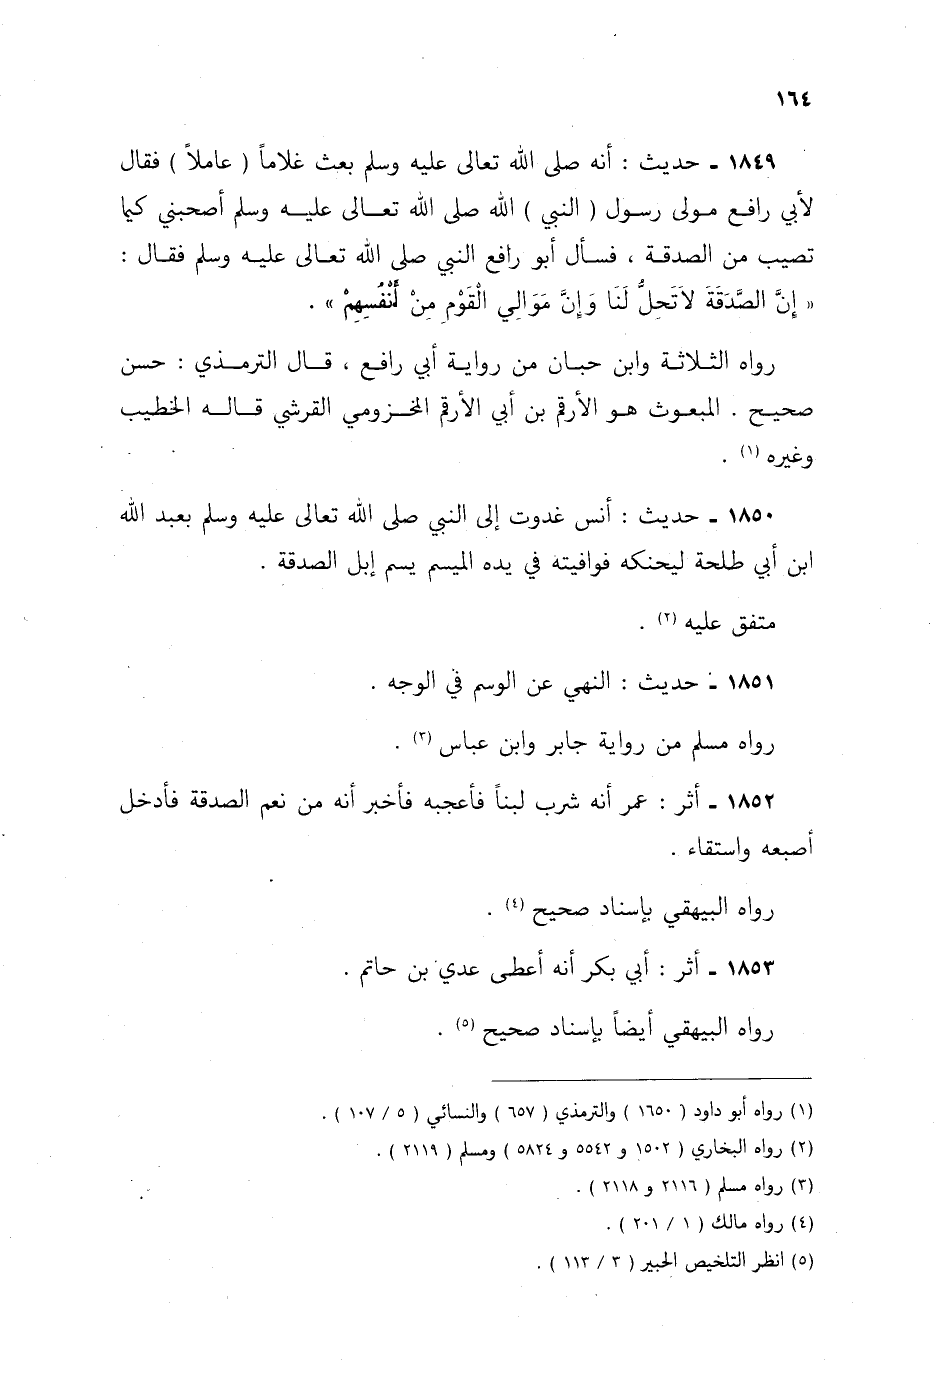 ١٦٤
١٨٤٩ - حديث : أنه صلى الله تعالى عليه وسلم بعث غلاماً ( عاملاً ) فقال
لأبي رافع مولى رسول ( النبي ) الله صلى الله تعالى عليه وسلم أصحبني كيما
تصيب من الصدقة ، فسأل أبو رافع النبي صلى الله تعالى عليه وسلم فقال :
« إِنَّ الصَّدَقَةَ لاَتَحِلُّ لَنَا وَإِنَّ مَوَالِي الْقَوْمِ مِنْ أَنْفُسِهِمْ » .
رواه الثلاثة وابن حبان من رواية أبي رافع ، قال الترمذي : حسن
صحيح . المبعوث هو الأرقم بن أبي الأرقم المخزومي القرشي قاله الخطيب
وغيره (١) .
١٨٥٠ - حديث : أنس غدوت إلى النبي صلى الله تعالى عليه وسلم بعبد الله
ابن أبي طلحة ليحنكه فوافيته في يده الميسم يسم إبل الصدقة .
متفق عليه (٢) .
١٨٥١ - حديث : النهي عن الوسم في الوجه .
رواه مسلم من رواية جابر وابن عباس (٣) .
١٨٥٢ - أثر : عمر أنه شرب لبناً فأعجبه فأخبر أنه من نعم الصدقة فأدخل
أصبعه واستقاء .
رواه البيهقي بإسناد صحيح (٤) .
١٨٥٣ - أثر : أبي بكر أنه أعطى عدي بن حاتم .
رواه البيهقي أيضاً بإسناد صحيح (٥) .
(١) رواه أبو داود ( ١٦٥٠ ) والترمذي ( ٦٥٧ ) والنسائي ( ٥ / ١٠٧ ) .
(٢) رواه البخاري ( ١٥٠٢ و ٥٥٤٢ و ٥٨٢٤ ) ومسلم ( ٢١١٩ ) .
(٣) رواه مسلم ( ٢١١٦ و ٢١١٨ ) .
(٤) رواه مالك ( ١ / ٢٠١ ) .
(٥) انظر التلخيص الحبير ( ٣ / ١١٣ ) .